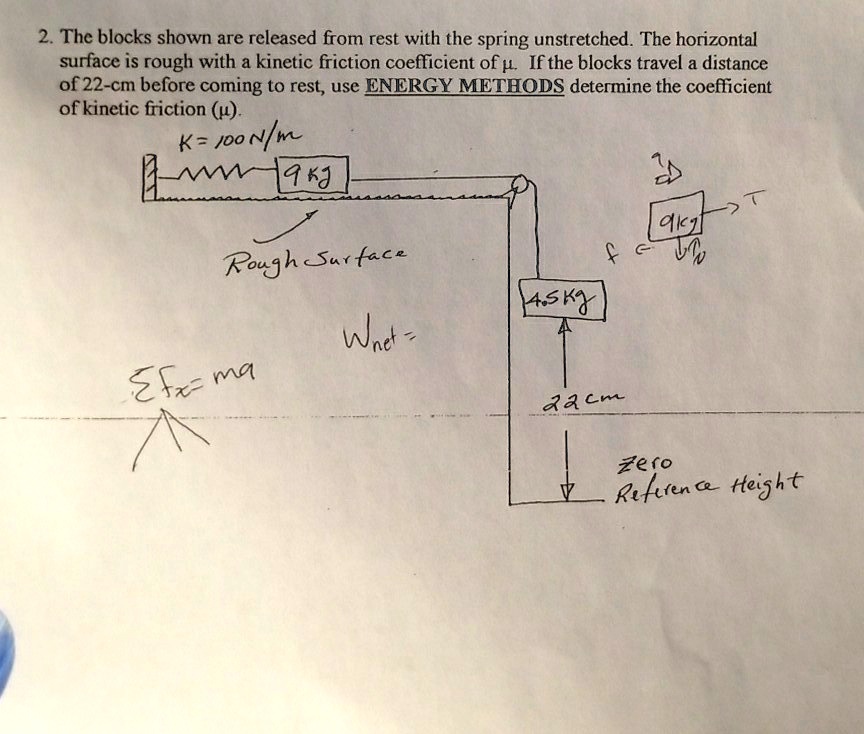 2. The blocks shown are released from rest with the spring unstretched. The horizontal
surface is rough with a kinetic friction coefficient of μ. If the blocks travel a distance
of 22-cm before coming to rest, use ENERGY METHODS determine the coefficient
of kinetic friction (μ).
K = 100 N/m
9 kg
Rough Surface
4.5 kg
9kg
T
f
N
Wnet =
ΣFx = ma
22 cm
Zero
Reference Height